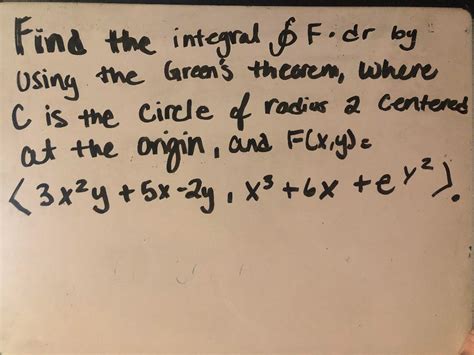 Find the integral ∮ F · dr by
using the Green's theorem, where
C is the circle of radius 2 centered
at the origin, and F(x,y)=
⟨3x²y + 5x - 2y, x³ + 6x + e^y²⟩.